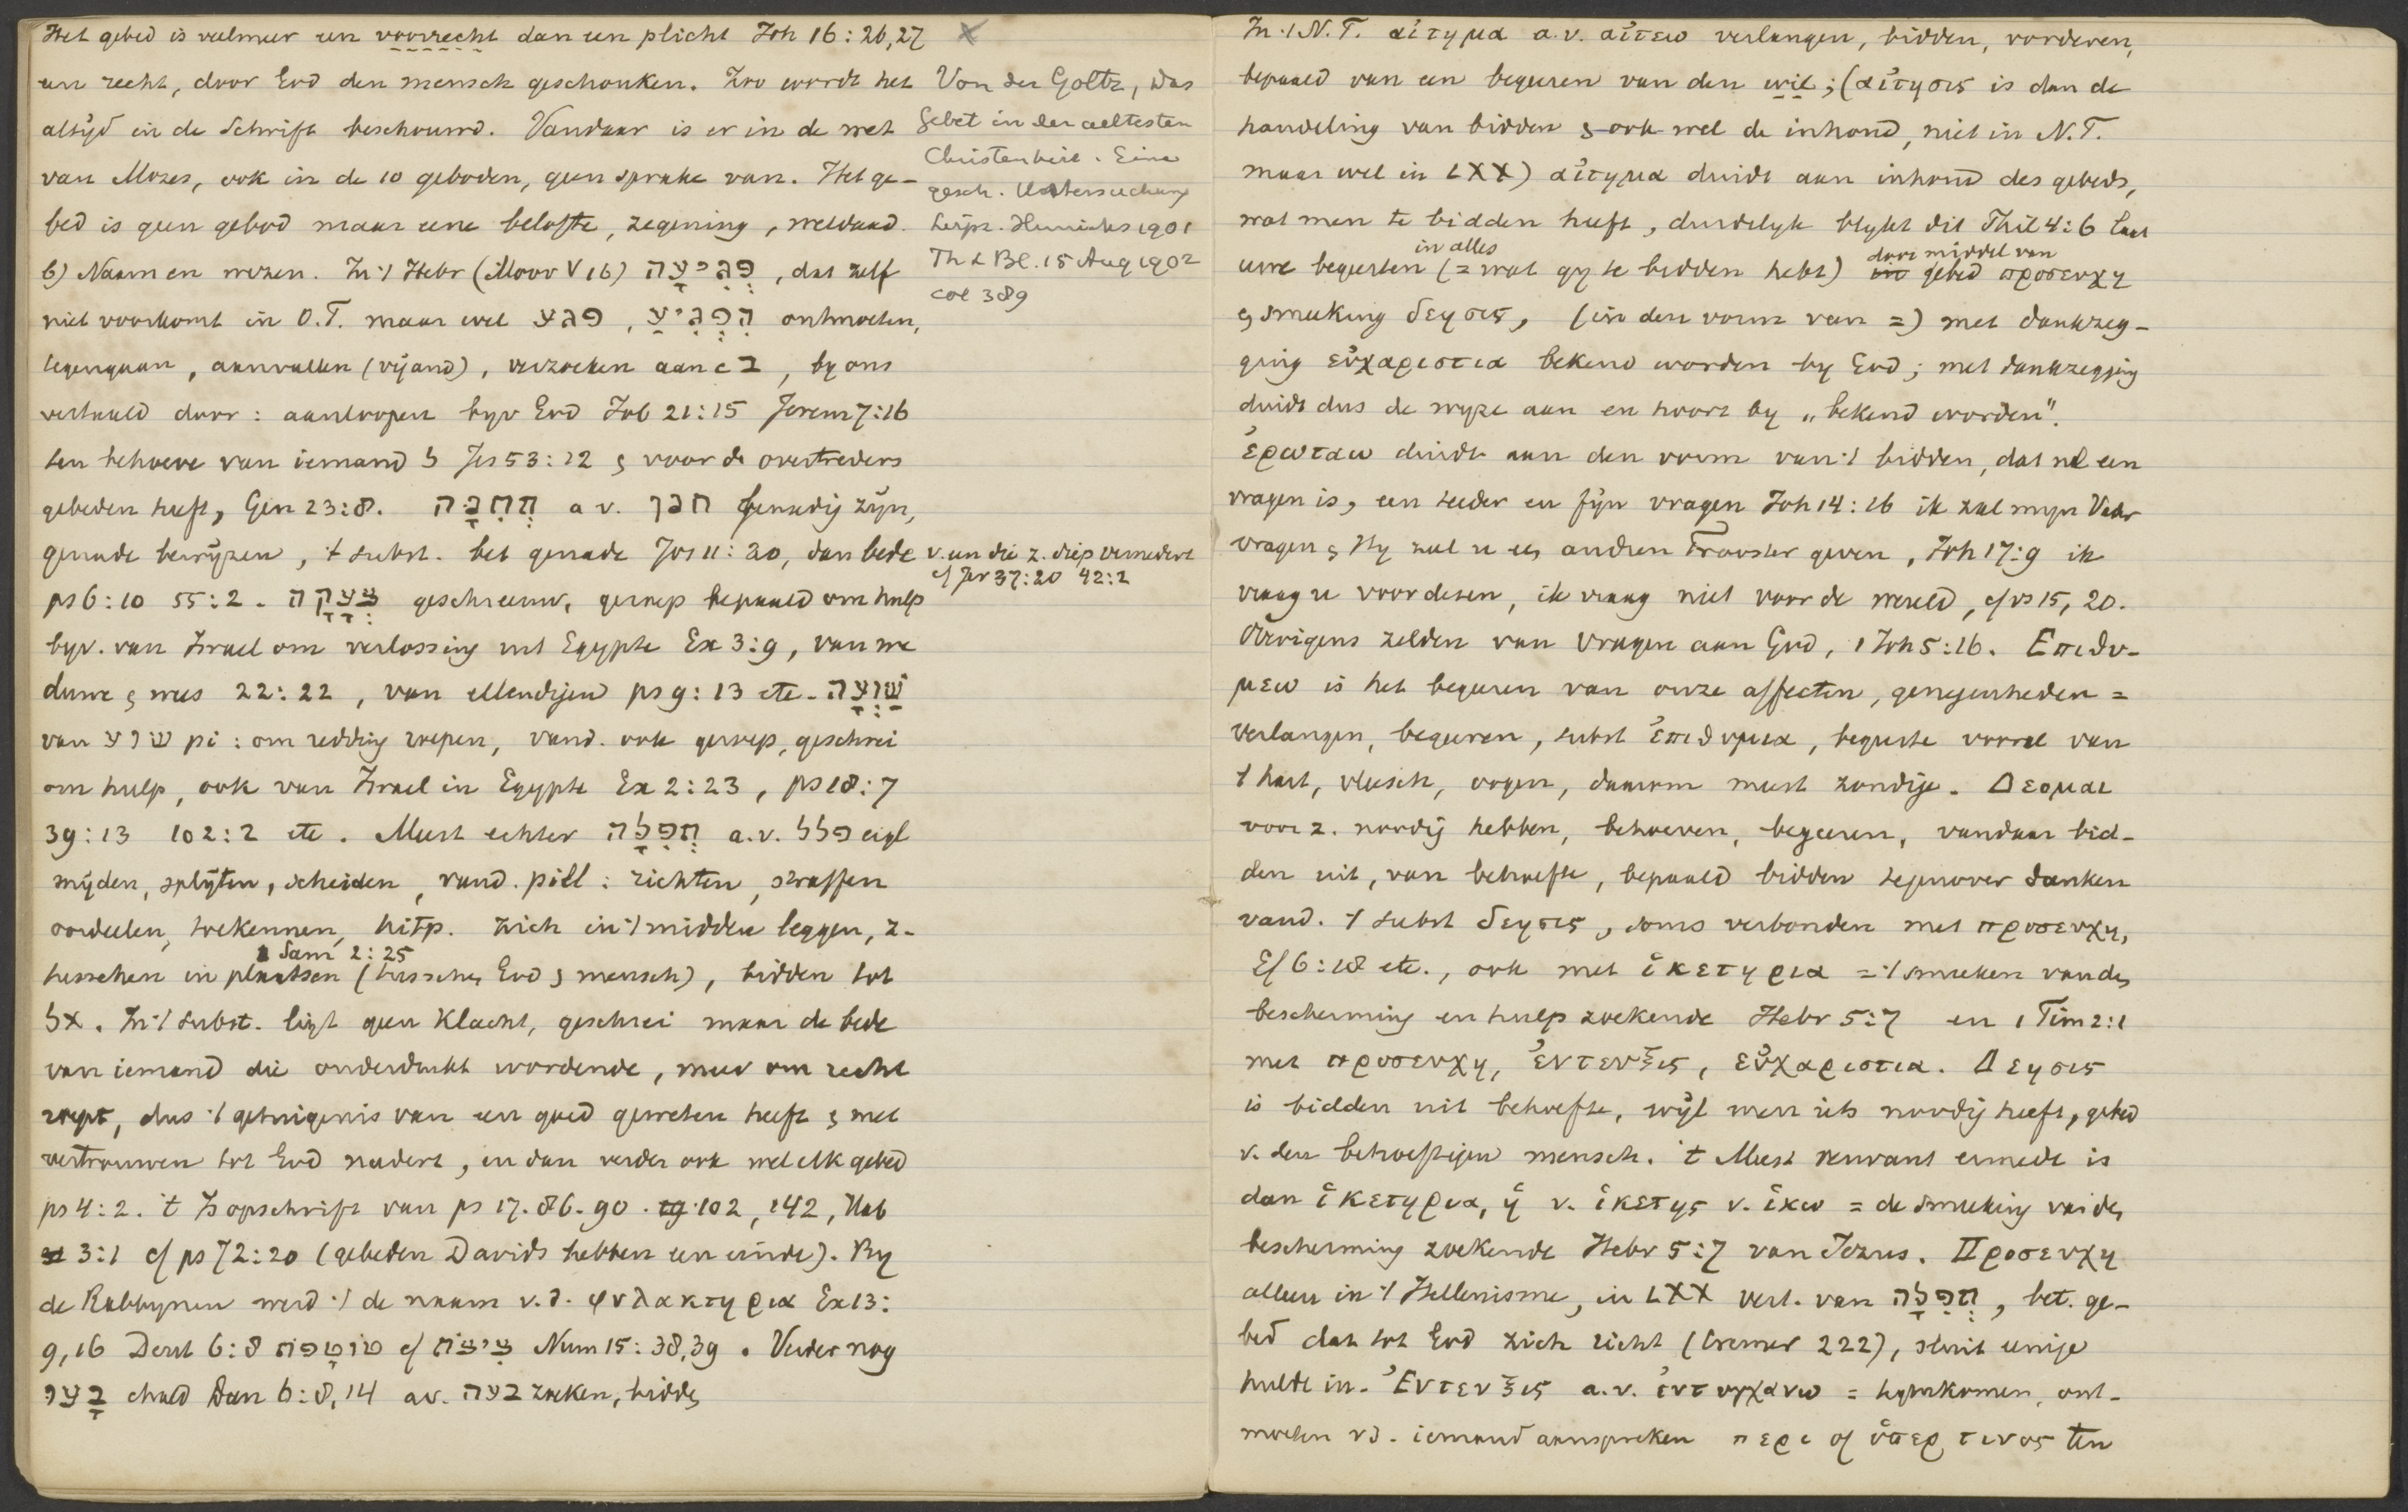 Het gebed is veelmeer een voorrecht dan een plicht Joh 16:26,27
een recht, door God den mensch geschonken. Zoo wordt het
altijd in de Schrift beschouwd. Vandaar is er in de wet
van Mozes, ook in de 10 geboden, geen sprake van. Het ge-
bed is geen gebod maar eene belofte, zegening, weldaad.
b) Naam en wezen. In 't Hebr (Moor V 16) פְּגִיעָה, dat zelf
niet voorkomt in O.T. maar wel פגע, הִפְגִּיעַ ontmoeten,
tegengaan, aanvallen (vijand), verzoeken aan c ב, by ons
vertaald door: aanloopen byv God Job 21:15 Jerem 7:16
ten behoeve van iemand ל Jes 53:12 & voor de overtreders
gebeden heeft, Gen 23:8. תְּחִנָּה a v. חנן genadig zijn,
genade bewijzen, 't subst. bet genade Jos 11:20, dan bede
ps 6:10 55:2. צְעָקָה geschreeuw, geroep bepaald om hulp
byv. van Israel om verlossing uit Egypte Ex 3:9, van we
duwe & wees 22:22, van ellendigen ps 9:13 etc. שַׁוְעָה
van שׁוע pi: om redding roepen, vand. ook geroep, geschrei
om hulp, ook van Israel in Egypte Ex 2:23, ps 18:7
39:13 102:2 etc. Meest echter תְּפִלָּה a.v. פלל eigl
snijden, splijten, scheiden, vand. piel: richten, straffen
oordeelen, toekennen, hitp. zich in 't midden leggen, z-
1 Sam 2:25
tusschen in plaatsen (tusschen God & mensch), bidden tot
לא. In 't subst. ligt geen klacht, geschrei maar de bede
van iemand die onderdrukt wordende, meer om recht
roept, dus 't getuigenis van een goed geweten heeft & met
vertrouwen tot God nadert, en dan verder ook wel elk gebed
ps 4:2. 't Is opschrift van ps 17. 86. 90. 102, 142, Hab
3:1 cf ps 72:20 (gebeden Davids hebben een einde). By
de Rabbynen werd 't de naam v.d. φυλακτηρια Ex 13:
9,16 Deut 6:8 טוֹטָפֹת cf צִיצִת Num 15:38,39. Verder nog
בְּעָו chald Dan 6:8,14 av. בעה zoeken, bidden
X
Von der Goltz, Das
Gebet in der aeltesten
Christenheit. Eine
gesch. Untersuchung
Leipz. Hinrichs 1901
Th L Bl. 15 Aug 1902
col 389
v. een die z. diep vernedert
cf Jer 37:20 42:2
In 't N.T. αἰτημα a.v. αἰτεω verlangen, bidden, vorderen,
bepaald van een begeeren van den wil; (αἰτησις is dan de
handeling van bidden & ook wel de inhoud, niet in N.T.
maar wel in LXX) αἰτημα duidt aan inhoud des gebeds,
wat men te bidden heeft, duidelijk blykt dit Phil 4:6 laat
in alles door middel van
uwe begeerten (= wat gy te bidden hebt) gebed προσευχη
& smeeking δεησις, (in den vorm van =) met dankzeg-
ging εὐχαριστια bekend worden by God; met dankzegging
duidt dus de wyze aan en hoort by „bekend worden".
ἐρωταω duidt aan den vorm van 't bidden, dat nl een
vragen is, een teeder en fijn vragen Joh 14:16 ik zal myn Vader
vragen & Hy zal u een andren Trooster geven, Joh 17:9 ik
vraag u voor dezen, ik vraag niet voor de wereld, cf vs 15, 20.
Overigens zelden van vragen aan God, 1 Joh 5:16. Επιθυ-
μεω is het begeeren van onze affecten, genegenheden =
verlangen, begeeren, subst ἐπιθυμια, begeerte vooral van
't hart, vleesch, oogen, daarom meest zondige. Δεομαι
voor z. noodig hebben, behoeven, begeeren, vandaar bid-
den uit, van behoefte, bepaald bidden tegenover danken
vand. 't subst δεησις, soms verbonden met προσευχη,
Ef 6:18 etc., ook met ἱκετηρια = 't smeeken van de
bescherming en hulp zoekende Hebr 5:7 en 1 Tim 2:1
met προσευχη, ἐντευξις, εὐχαριστια. Δεησις
is bidden uit behoefte, wijl men iets noodig heeft, gebed
v. den behoeftigen mensch. 't Meest verwant ermede is
dan ἱκετηρια, ἡ v. ἱκετης v. ἱκω = de smeeking van de
bescherming zoekende Hebr 5:7 van Jezus. Προσευχη
alleen in 't Hellenisme, in LXX vert. van תְּפִלָּה, bet. ge-
bed dat tot God zich richt (Cremer 222), sluit eenige
hulde in. Ἐντευξις a.v. ἐντυγχανω = tegenkomen, ont-
moeten vd. iemand aanspreken περι of ὑπερ τινος ten